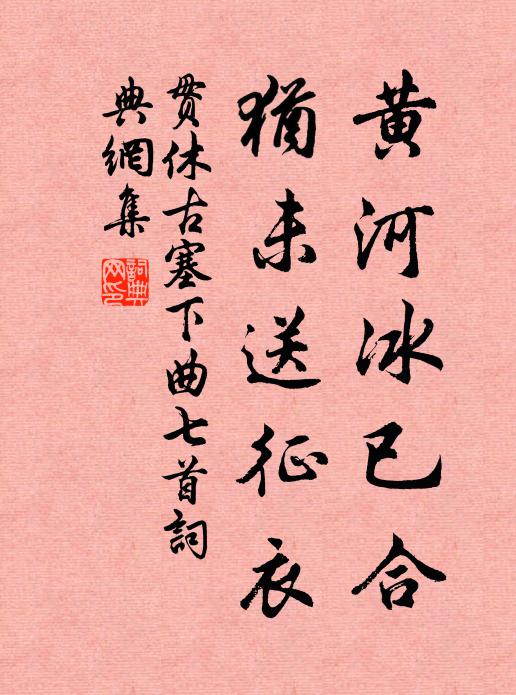 黄河冰已合
猶未送征衣
贯休古塞下曲七首詞
典網集
詞典網印